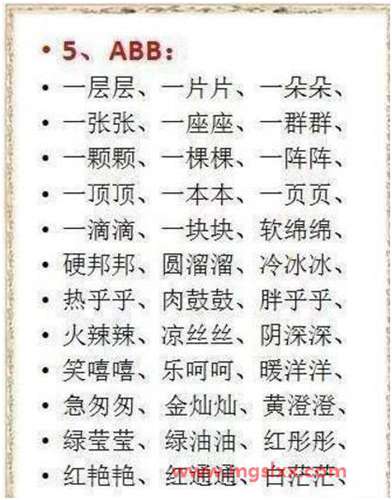 • 5、ABB：
• 一层层、一片片、一朵朵、
• 一张张、一座座、一群群、
• 一颗颗、一棵棵、一阵阵、
• 一顶顶、一本本、一页页、
• 一滴滴、一块块、软绵绵、
• 硬邦邦、圆溜溜、冷冰冰、
• 热乎乎、肉鼓鼓、胖乎乎、
• 火辣辣、凉丝丝、阴深深、
• 笑嘻嘻、乐呵呵、暖洋洋、
• 急匆匆、金灿灿、黄澄澄、
• 绿莹莹、绿油油、红彤彤、
• 红艳艳、红通通、白茫茫、
www.mgslxx.com